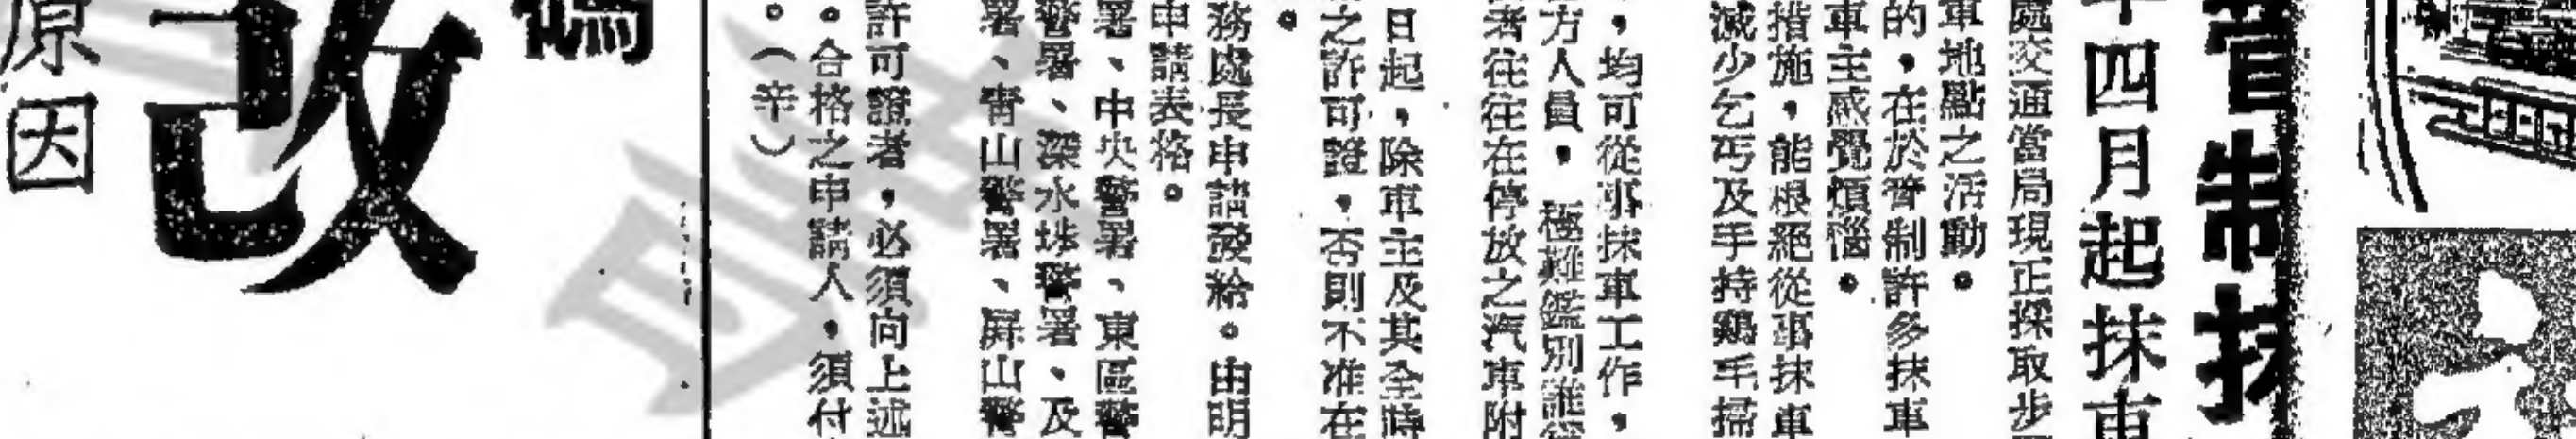 管制抹
年四月起抹車
處交通當局現正採取步
車地點之活動。
的，在於管制許多抹車
車主感覺煩惱。
措施，能根絕從事抹車
減少乞丐及手持鷄毛掃
，均可從事抹車工作，
方人員，極難鑑別誰
者往往在停放之汽車附
日起，除車主及其全時
之許可證，否則不准在
。
務處長申請發給。由明
申請表格。
署、中央警署、東區警
警署、深水埗警署、及
署、青山警署、屏山警
許可證者，必須向上述
。合格之申請人，須付
。（辛）
碼
改
原因